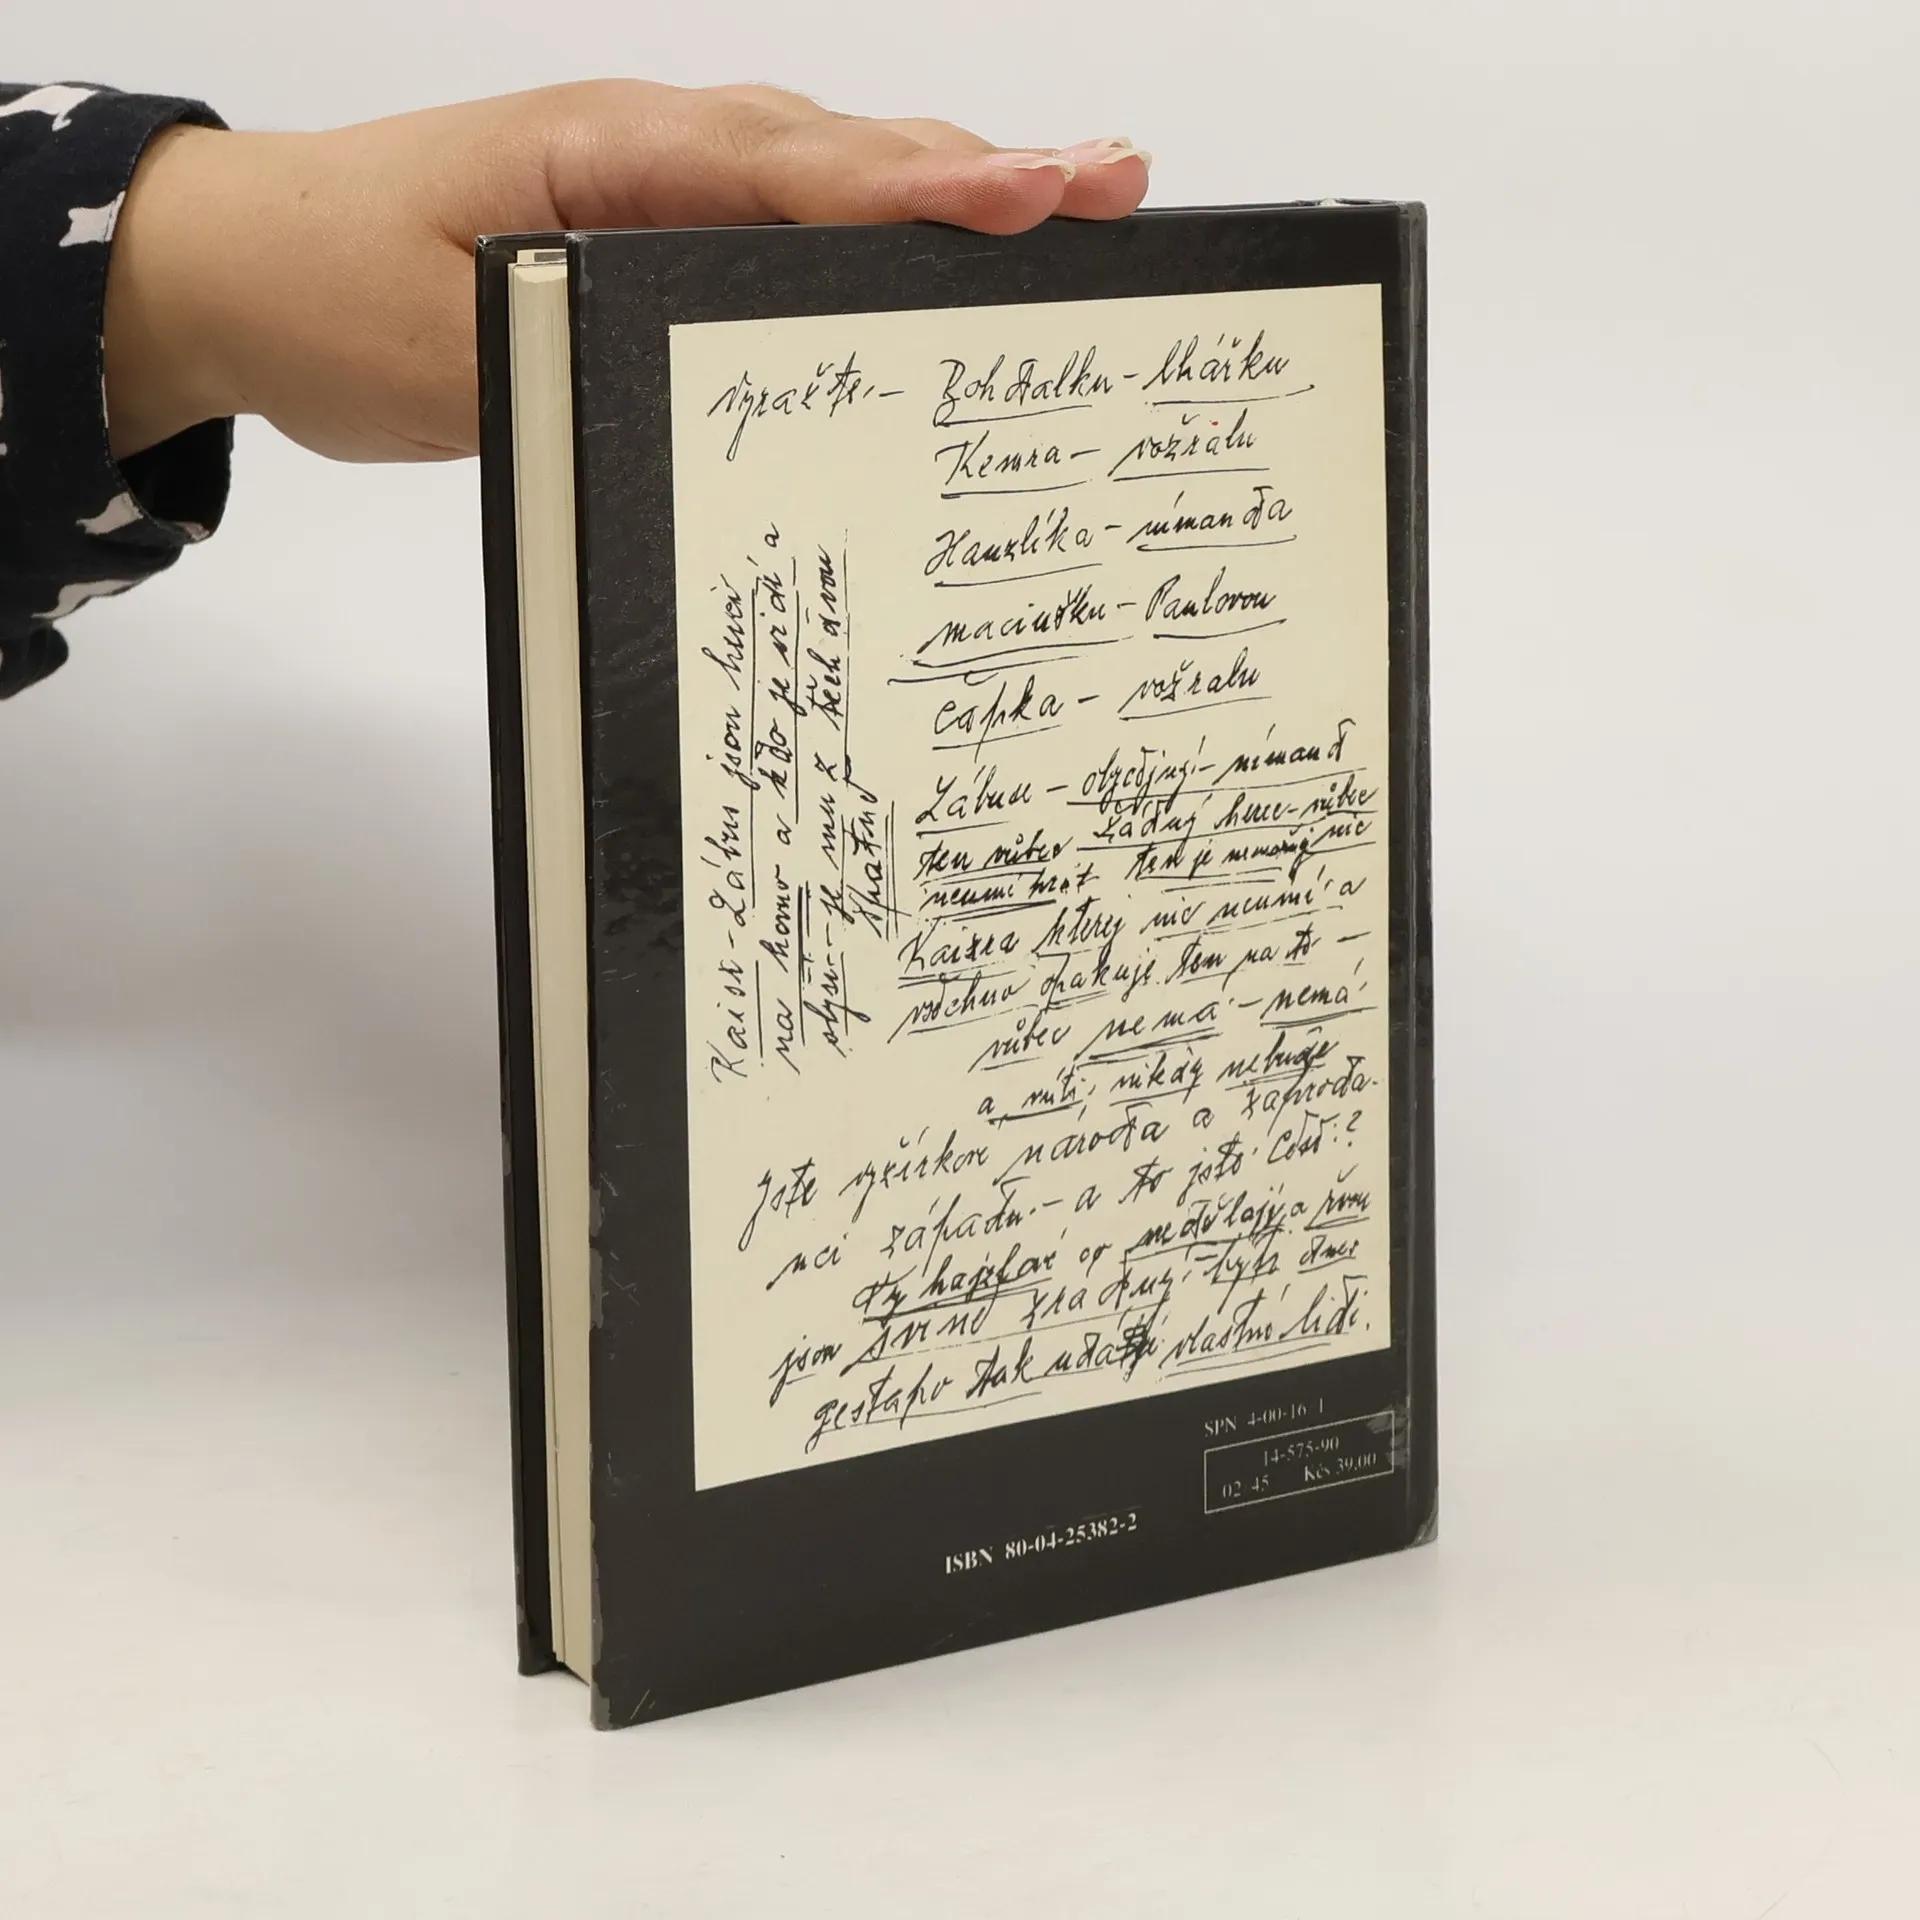 vyražte. - Bohdalku - lhářku
Kemra - vožralu
Hanzlíka - nímanda
maciušku - Pavlovou
čápka - vožralu
Zábuse - obyčejný - nímand
ten vůbec žádný herec - vůbec
neumí hrát ten je nemožnej nic
Kaisra kterej nic neumí a
všechno opakuje ten na to -
vůbec nemá - nemá
a níti, nikdy nebude
jste vyžírkové národa a zaproda-
nci západu. - a to jste Češi?
Ty hajzlové co nedělají a řvou
jsou svině zrádný - bejt dnes
gestapo tak udají vlastní lidi.
Kaisr - Zábus jsou herci
na hovno a kdo je vidí a
slyší - je mu z těch dvou
špatně
SPN 4-00-16 1
14-575-90
02 45 Kčs 39,00
ISBN 80-04-25382-2